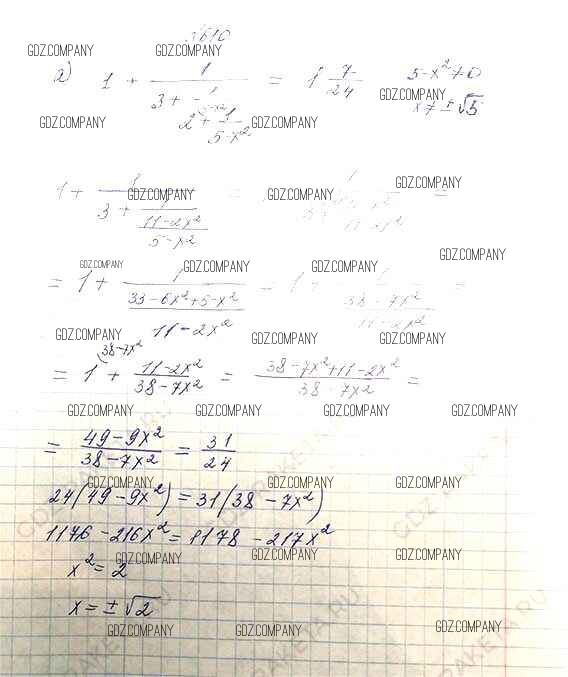 №610
GDZ.COMPANY GDZ.COMPANY
а) 1 + 1/(3 + 1/(2 + 1/(5-x²))) = 1 7/24 5-x² ≠ 0
GDZ.COMPANY
x ≠ ±√5
GDZ.COMPANY GDZ.COMPANY
GDZ.COMPANY
1 + 1/(3 + 1/((11-2x²)/(5-x²))) =
GDZ.COMPANY GDZ.COMPANY
GDZ.COMPANY
GDZ.COMPANY GDZ.COMPANY GDZ.COMPANY
= 1 + 1/((33-6x²+5-x²)/(11-2x²)) = 1 + 1/((38-7x²)/(11-2x²)) =
GDZ.COMPANY GDZ.COMPANY GDZ.COMPANY
38-7x²
= 1 + (11-2x²)/(38-7x²) = (38-7x²+11-2x²)/(38-7x²) =
GDZ.COMPANY GDZ.COMPANY GDZ.COMPANY GDZ.COMPANY
= (49-9x²)/(38-7x²) = 31/24
GDZ.COMPANY GDZ.COMPANY GDZ.COMPANY
24(49-9x²)=31(38-7x²)
1176-216x²=1178-217x²
GDZ.COMPANY GDZ.COMPANY GDZ.COMPANY
x²=2
x=±√2
GDZ.COMPANY GDZ.COMPANY GDZ.COMPANY